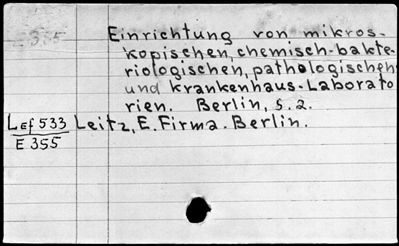 E 355
Einrichtung von mikros-
kopischen, chemisch-bakte-
riologischen, pathologischen
und Krankenhaus-Laborato
rien. Berlin, s.a.
Lef 533 Leitz, E. Firma. Berlin.
E 355